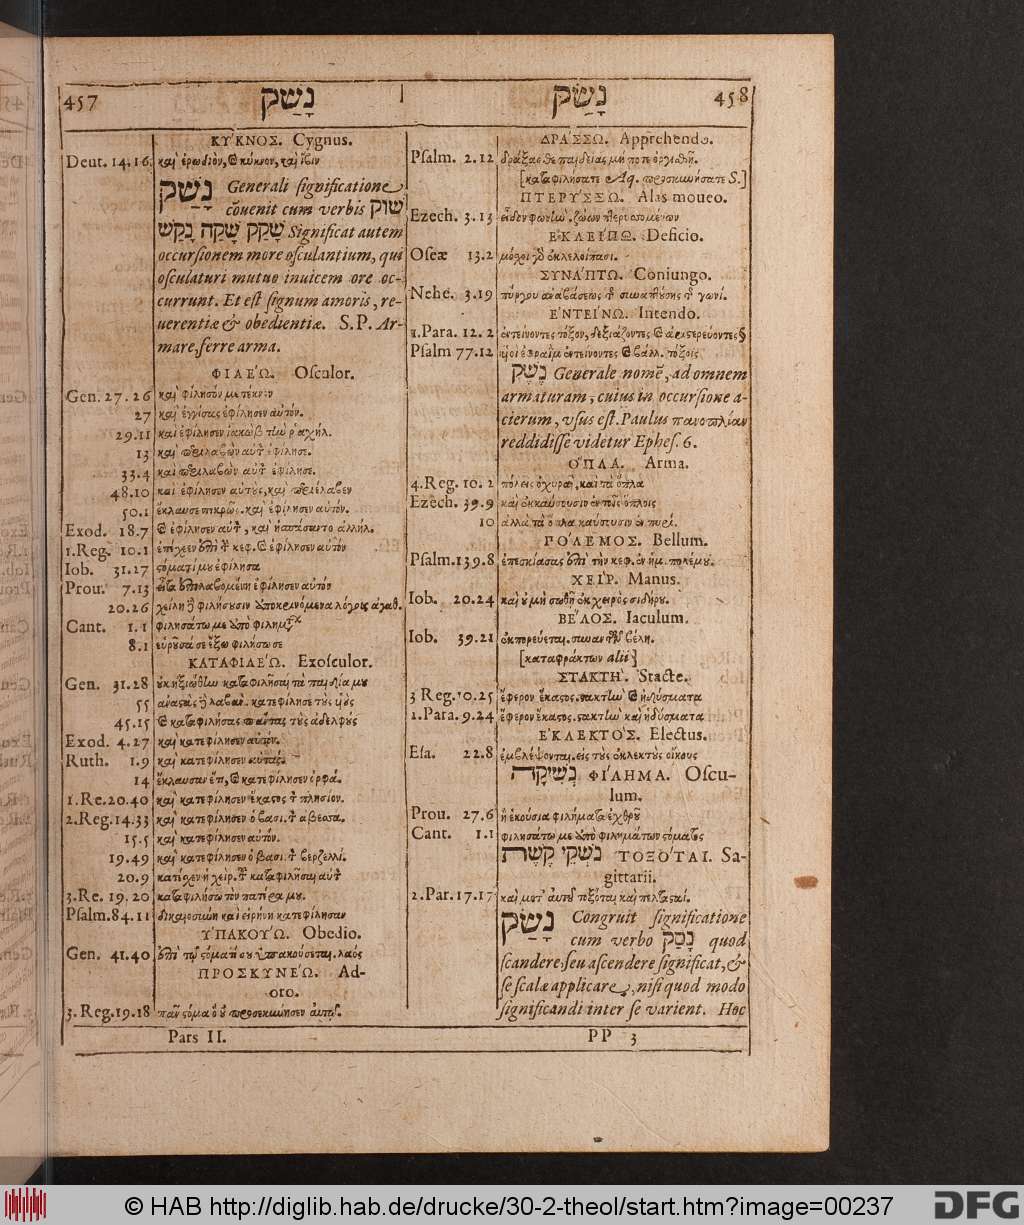 457 נָשַׁק נָשַׂק 458
ΚΥΚΝΟΣ. Cygnus.
Deut. 14.16. καὶ ἐρωδιὸν, καὶ κύκνον, καὶ ἶβιν
נָשַׁק Generali significatione
cōuenit cum verbis שׁוּק
שָׁקַק שָׁקָה נָקַשׁ Significat autem
occursionem more osculantium, qui
osculaturi mutuo inuicem ore oc-
currunt. Et est signum amoris, re-
uerentiæ & obedientiæ. S.P. Ar-
mare, ferre arma.
ΦΙΛΕΏ. Osculor.
Gen. 27.26 καὶ φίλησόν με τέκνον
27 καὶ ἐγγίσας ἐφίλησεν αὐτόν.
29.11 καὶ ἐφίλησεν ἰακὼβ τὴν ῥαχήλ.
13 καὶ περιλαβὼν αὐτὸν ἐφίλησε.
33.4 καὶ περιλαβὼν αὐτὸν ἐφίλησε.
48.10 καὶ ἐφίλησεν αὐτοὺς, καὶ περιέλαβεν
50.1 ἔκλαυσε πικρῶς. καὶ ἐφίλησεν αὐτόν.
Exod. 18.7 καὶ ἐφίλησεν αὐτὸν, καὶ ἠσπάσαντο ἀλλήλ.
1.Reg. 10.1 ἐπέχεεν ἐπὶ τὴν κεφ. καὶ ἐφίλησεν αὐτόν
Iob. 31.27 στόματί μου ἐφίλησα
Prou. 7.13 εἶτα ἐπιλαβομένη ἐφίλησεν αὐτόν
20.26 χείλη δὲ φιλήσουσιν ἀποκρινόμενα λόγους ἀγαθ.
Cant. 1.1 φιλησάτω με ἀπὸ φιλημάτ
8.1 εὑροῦσά σε ἔξω φιλήσω σε
ΚΑΤΑΦΙΛΕΏ. Exosculor.
Gen. 31.28 οὐκ ἠξιώθην καταφιλῆσαι τὰ παιδία μου
55 ἀναστὰς δὲ λαβαν. κατεφίλησε τοὺς υἱοὺς
45.15 καὶ καταφιλήσας πάντας τοὺς ἀδελφοὺς
Exod. 4.27 καὶ κατεφίλησεν αὐτόν.
Ruth. 1.9 καὶ κατεφίλησεν αὐτάς.
14 ἔκλαυσαν ἔτι, καὶ κατεφίλησεν ὀρφά.
1.Re.20.40 καὶ κατεφίλησεν ἕκαστος τὸν πλησίον.
2.Reg.14.33 καὶ κατεφίλησεν ὁ βασι. τὸν ἀβεσσα.
15.5 καὶ κατεφίλησεν αὐτόν.
19.49 καὶ κατεφίλησεν ὁ βασι. τὸν βερζελλί.
20.9 κατέχεν ἡ χεὶρ. τοῦ καταφιλῆσαι αὐτόν
3.Re. 19.20 καταφιλήσω τὸν πατέρα μου.
Psalm.84.11 δικαιοσύνη καὶ εἰρήνη κατεφίλησαν
ΥΠΑΚΟΥΏ. Obedio.
Gen. 41.40 ἐπὶ τῷ στόματί σου ὑπακούσεται. λαός
ΠΡΟΣΚΥΝΕΏ. Ad-
oro.
3.Reg.19.18 πᾶν στόμα ὃ οὐ προσεκύνησεν αὐτῷ.
Pars II.
ΔΡΑΣΣΩ. Apprehendo.
Psalm. 2.12 δράξασθε παιδείας μή ποτε ὀργισθῇ.
[καταφιλήσατε Aq. προσκυνήσατε S.]
ΠΤΕΡΥΣΣΩ. Alas moueo.
Ezech. 3.13 εἶδεν φωνὴν. ζώων πτερυσσομένων
ΕΚΛΕΙΠΩ. Deficio.
Oseæ 13.2 μόσχοι γὰρ ἐκλελοίπασι.
ΣΥΝΑΠΤΩ. Coniungo.
Nehe. 3.19 πύργου ἀναβάσεως τῆς συναπτούσης τῆς γωνί.
ΕΝΤΕΙΝΩ. Intendo.
1.Para. 12.2 ἐντείνοντες τόξον, δεξιάζοντες καὶ ἀριστερεύοντες
Psalm 77.12 υἱοὶ ἐφραῒμ ἐντείνοντες καὶ βάλλ. τόξοις
נֶשֶׁק Generale nomē, ad omnem
armaturam, cuius in occursione a-
cierum, vsus est. Paulus πανοπλίαν
reddidisse videtur Ephes. 6.
ΟΠΛΑ. Arma.
4.Reg. 10.2 πόλεις ὀχυραὶ, καὶ τὰ ὅπλα
Ezech. 39.9 καὶ ἐκκαύσουσιν ἐν τοῖς ὅπλοις
10 ἀλλὰ τὰ ὅπλα καύσουσιν ἐν πυρί.
ΠΟΛΕΜΟΣ. Bellum.
Psalm.139.8 ἐπεσκίασας ἐπὶ τὴν κεφ. ἐν ἡμ. πολέμου.
ΧΕΙΡ. Manus.
Iob. 20.24 καὶ οὐ μὴ σωθῇ ἐκ χειρὸς σιδήρου.
ΒΕΛΟΣ. Iaculum.
Iob. 39.21 ἐκπορεύεται. συναντᾷν βέλη.
[καταφράκτων alii]
ΣΤΑΚΤΗ. Stacte.
3 Reg.10.25 ἔφερον ἕκαστος. στακτὴν καὶ ἡδύσματα
2.Para. 9.24 ἔφερον ἕκαστος. στακτὴν καὶ ἡδύσματα
ΕΚΛΕΚΤΟΣ. Electus.
Esa. 22.8 ἐμβλέψονται. εἰς τοὺς ἐκλεκτοὺς οἴκους
נְשִׁיקָה ΦΙΛΗΜΑ. Oscu-
lum.
Prou. 27.6 ἢ ἑκούσια φιλήματα ἐχθροῦ
Cant. 1.1 φιλησάτω με ἀπὸ φιλημάτων στόματος
נֹשְׁקֵי קֶשֶׁת ΤΟΞΟΤΑΙ. Sa-
gittarii.
2.Par.17.17 καὶ μετ' αὐτοῦ τοξόται καὶ πελτασταί.
נָשַׂק Congruit significatione
cum verbo נָסַק quod
scandere, seu ascendere significat, &
se scalæ applicare, nisi quod modo
significandi inter se varient. Hoc
PP 3
© HAB http://diglib.hab.de/drucke/30-2-theol/start.htm?image=00237
DFG